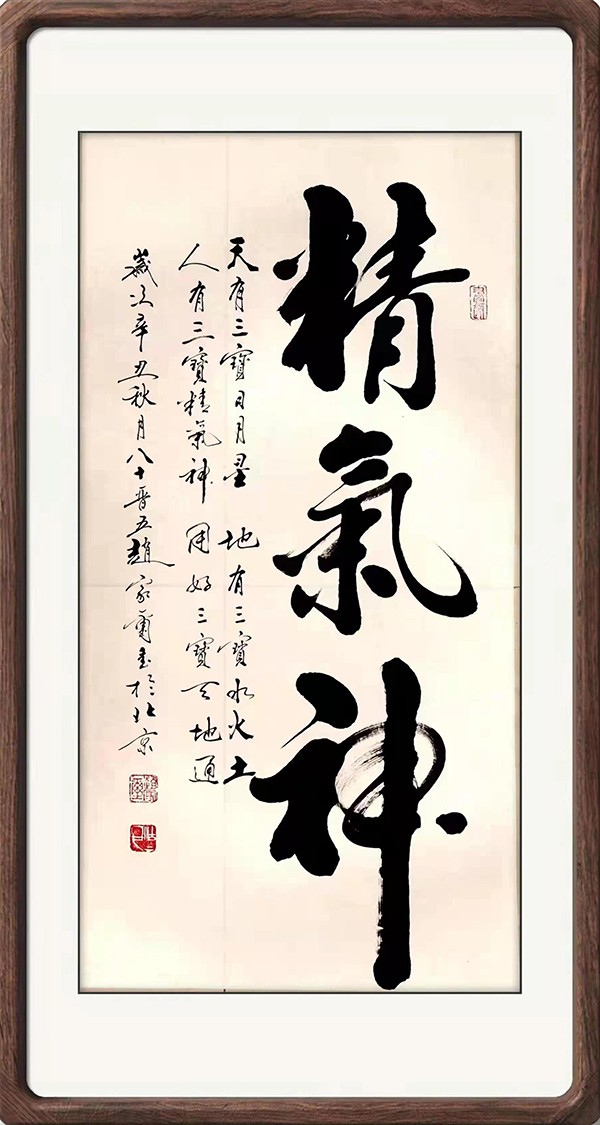 精氣神
天有三寶日月星 地有三寶水火土
人有三寶精氣神 用好三寶天地通
歲次辛丑秋月八十晋五趙家爾書於北京